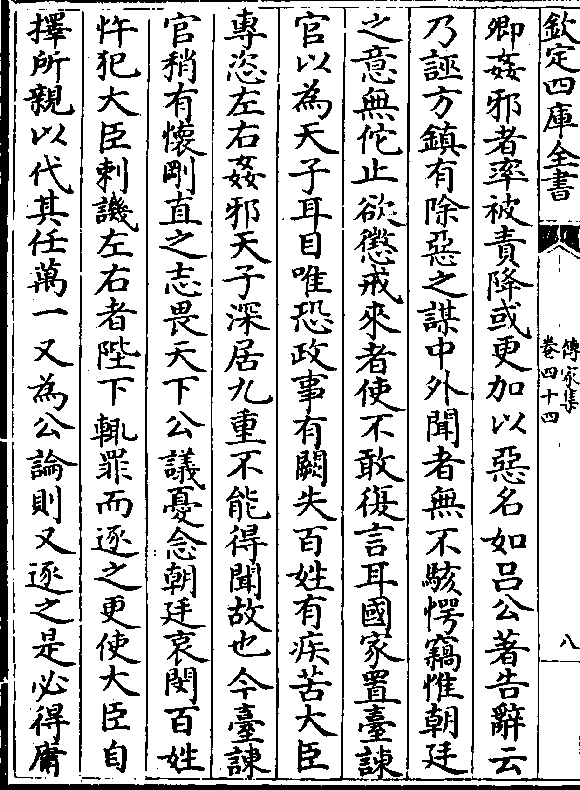 欽定四庫全書
傳家集
卷四十四
八
卿姦邪者率被責降或更加以惡名如吕公著告辭云
乃誣方鎮有除惡之謀中外聞者無不駭愕竊惟朝廷
之意無佗止欲懲戒來者使不敢復言耳國家置臺諫
官以為天子耳目唯恐政事有闕失百姓有疾苦大臣
專恣左右姦邪天子深居九重不能得聞故也今臺諫
官稍有懷剛直之志畏天下公議憂念朝廷哀閔百姓
忤犯大臣刺譏左右者陛下輒罪而逐之更使大臣自
擇所親以代其任萬一又為公論則又逐之是必得庸